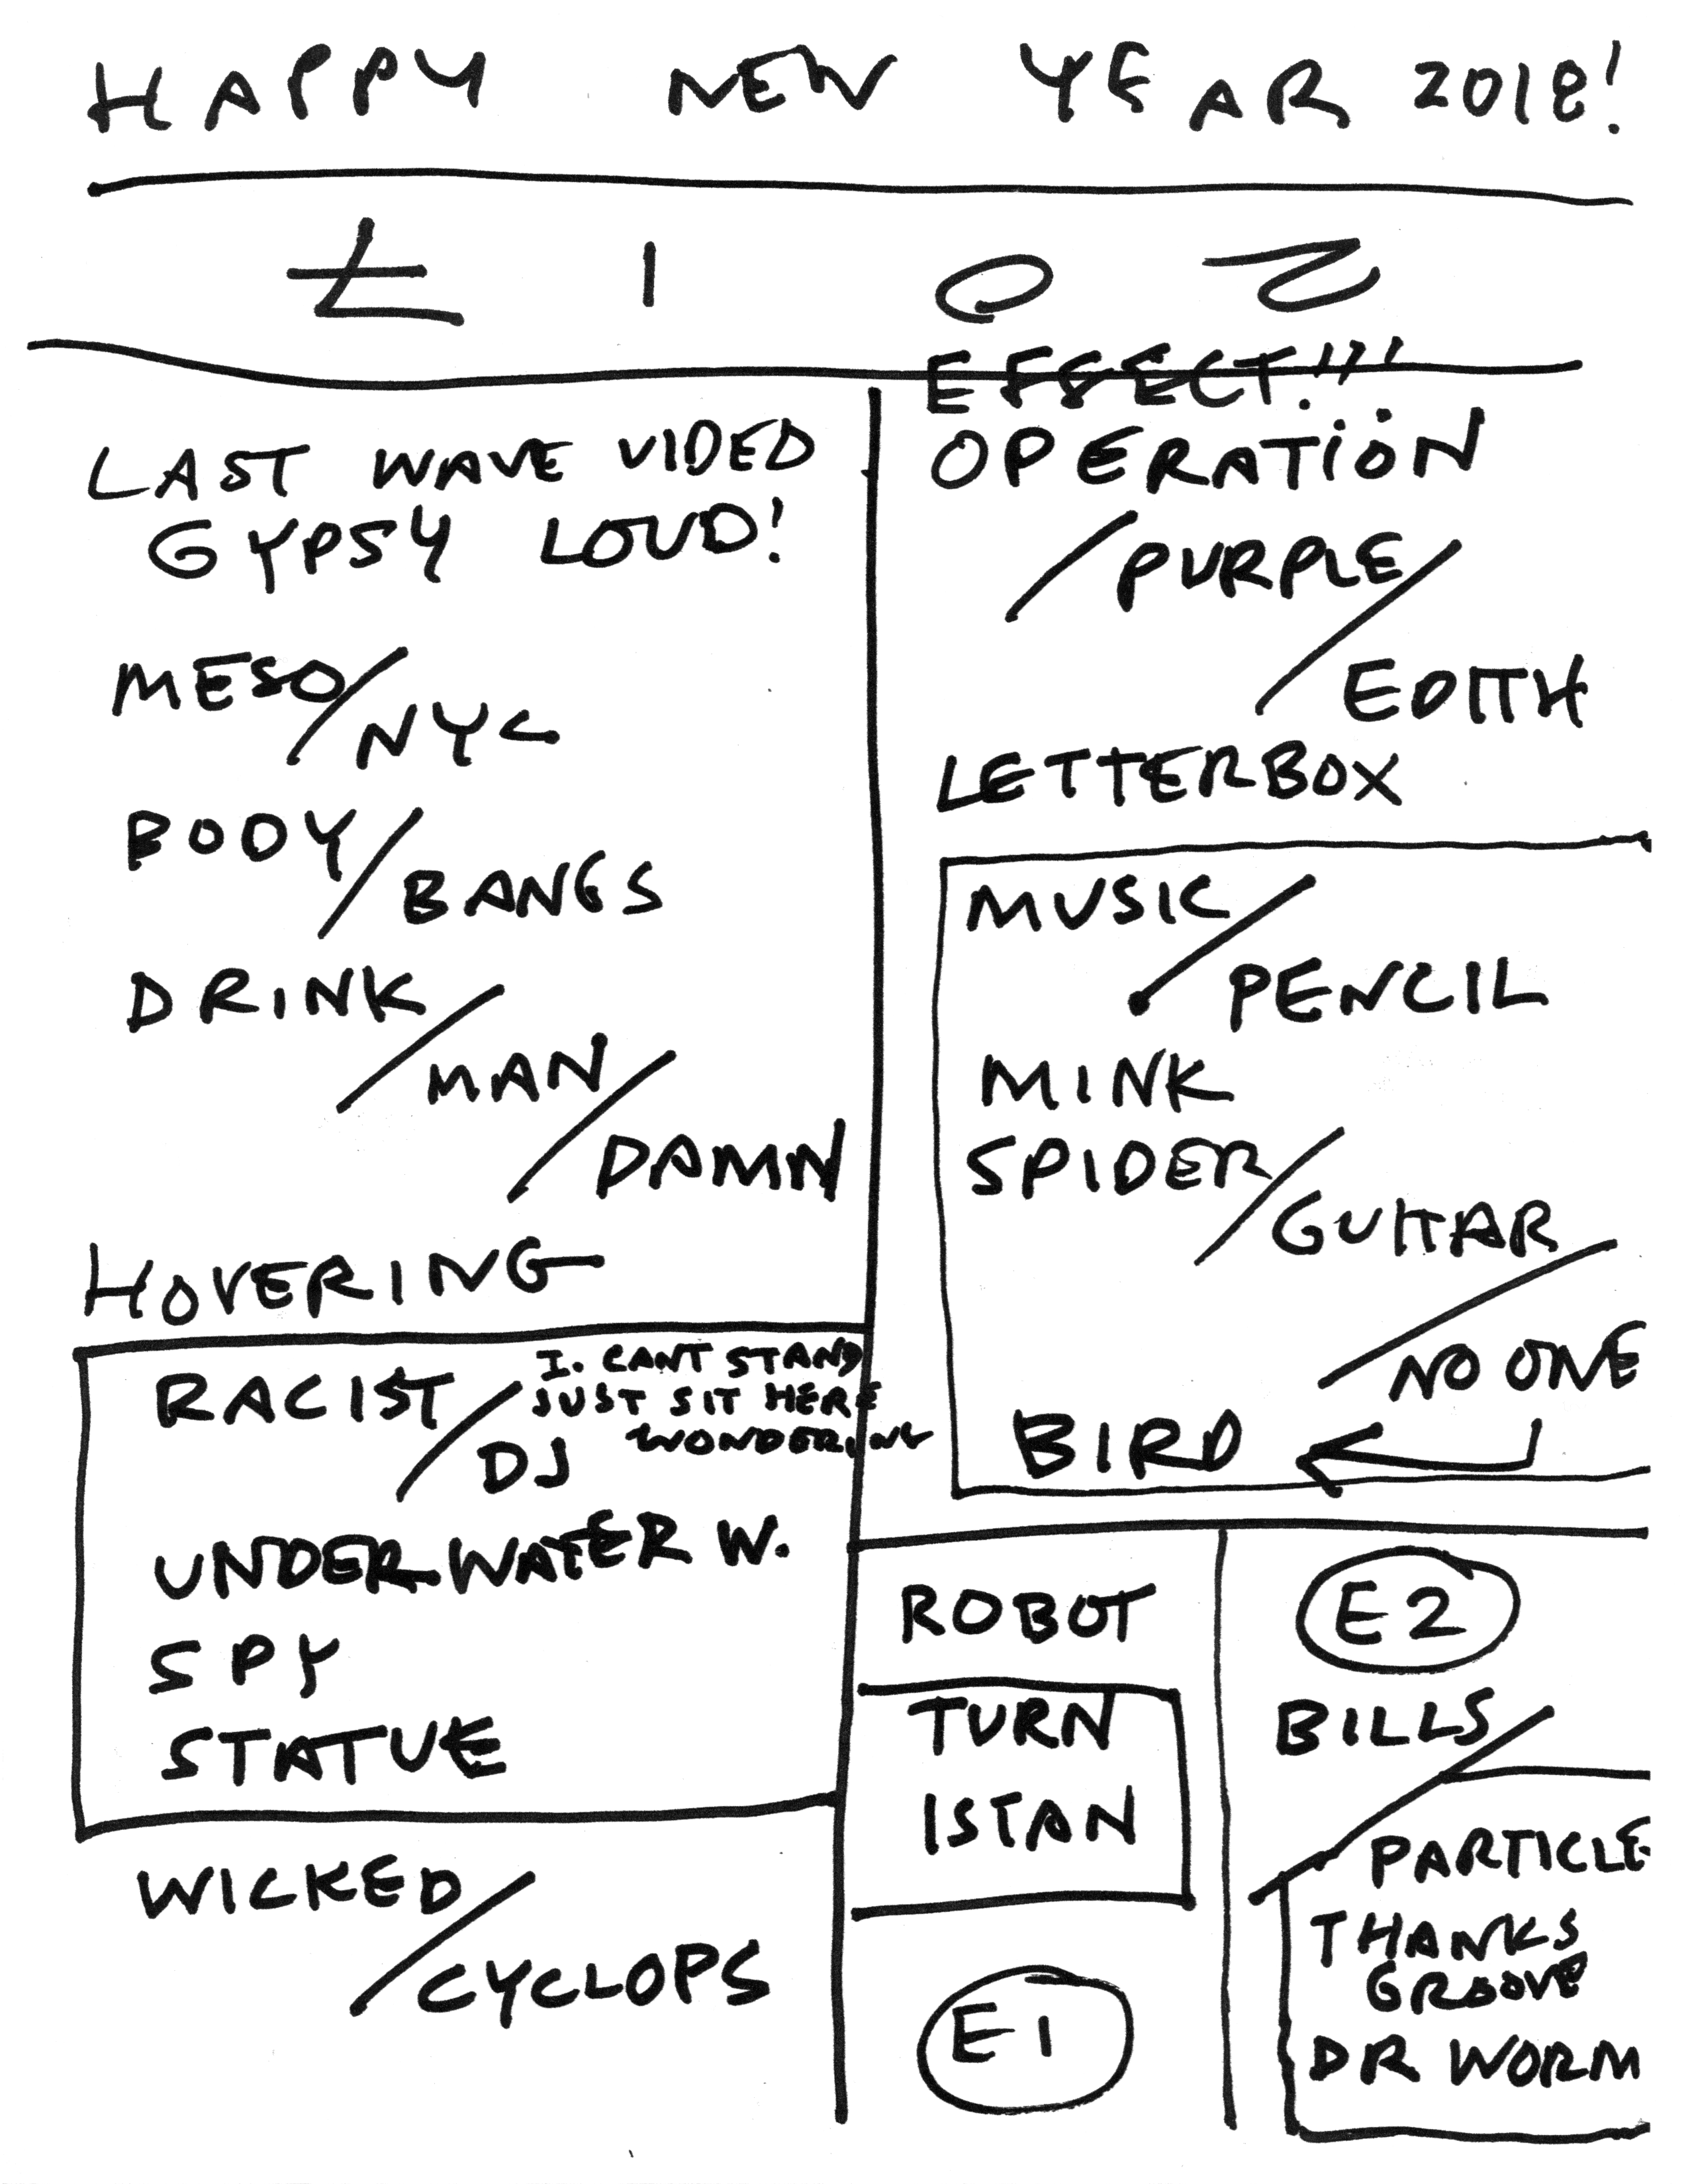 HAPPY NEW YEAR 2018!
LAST WAVE VIDEO
GYPSY LOUD!
MESO/
NYC
BODY/
BANGS
DRINK/
MAN/
DAMN
HOVERING
RACIST/
I. CANT STAND
JUST SIT HERE
WONDERING
DJ
UNDERWATER W.
SPY
STATUE
WICKED/
CYCLOPS
EFFECT!!!
OPERATION
/PURPLE/
EDITH
LETTERBOX
MUSIC/
PENCIL
MINK
SPIDER/
GUITAR/
NO ONE
BIRD
ROBOT
TURN
ISTAN
E1
E2
BILLS/
PARTICLE
THANKS
GROOVE
DR WORM